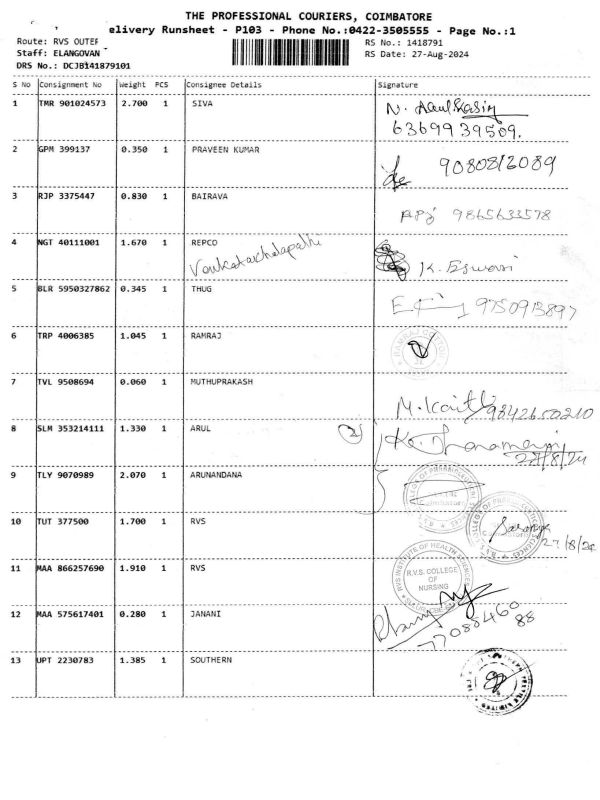 THE PROFESSIONAL COURIERS, COIMBATORE
elivery Runsheet - P103 - Phone No.:0422-3505555 - Page No.:1
Route: RVS OUTER
Staff: ELANGOVAN
DRS No.: DCJB141879101
RS No.: 1418791
RS Date: 27-Aug-2024
S No Consignment No Weight PCS Consignee Details Signature
1 TMR 901024573 2.700 1 SIVA
6369939509.
2 GPM 399137 0.350 1 PRAVEEN KUMAR 9080812089
3 RJP 3375447 0.830 1 BAIRAVA 9865633578
4 NGT 40111001 1.670 1 REPCO
Venkatachalapathi K. Eswari
5 BLR 5950327862 0.345 1 THUG 9750913897
6 TRP 4006385 1.045 1 RAMRAJ
7 TVL 9508694 0.060 1 MUTHUPRAKASH
9842650210
8 SLM 353214111 1.330 1 ARUL 2
27/8/24
9 TLY 9070989 2.070 1 ARUNANDANA
10 TUT 377500 1.700 1 RVS Saranya
27/8/24
11 MAA 866257690 1.910 1 RVS
RVS INSTITUTE OF HEALTH SCIENCES
R.V.S. COLLEGE
OF
NURSING
12 MAA 575617401 0.280 1 JANANI
7708846088
13 UPT 2230783 1.385 1 SOUTHERN